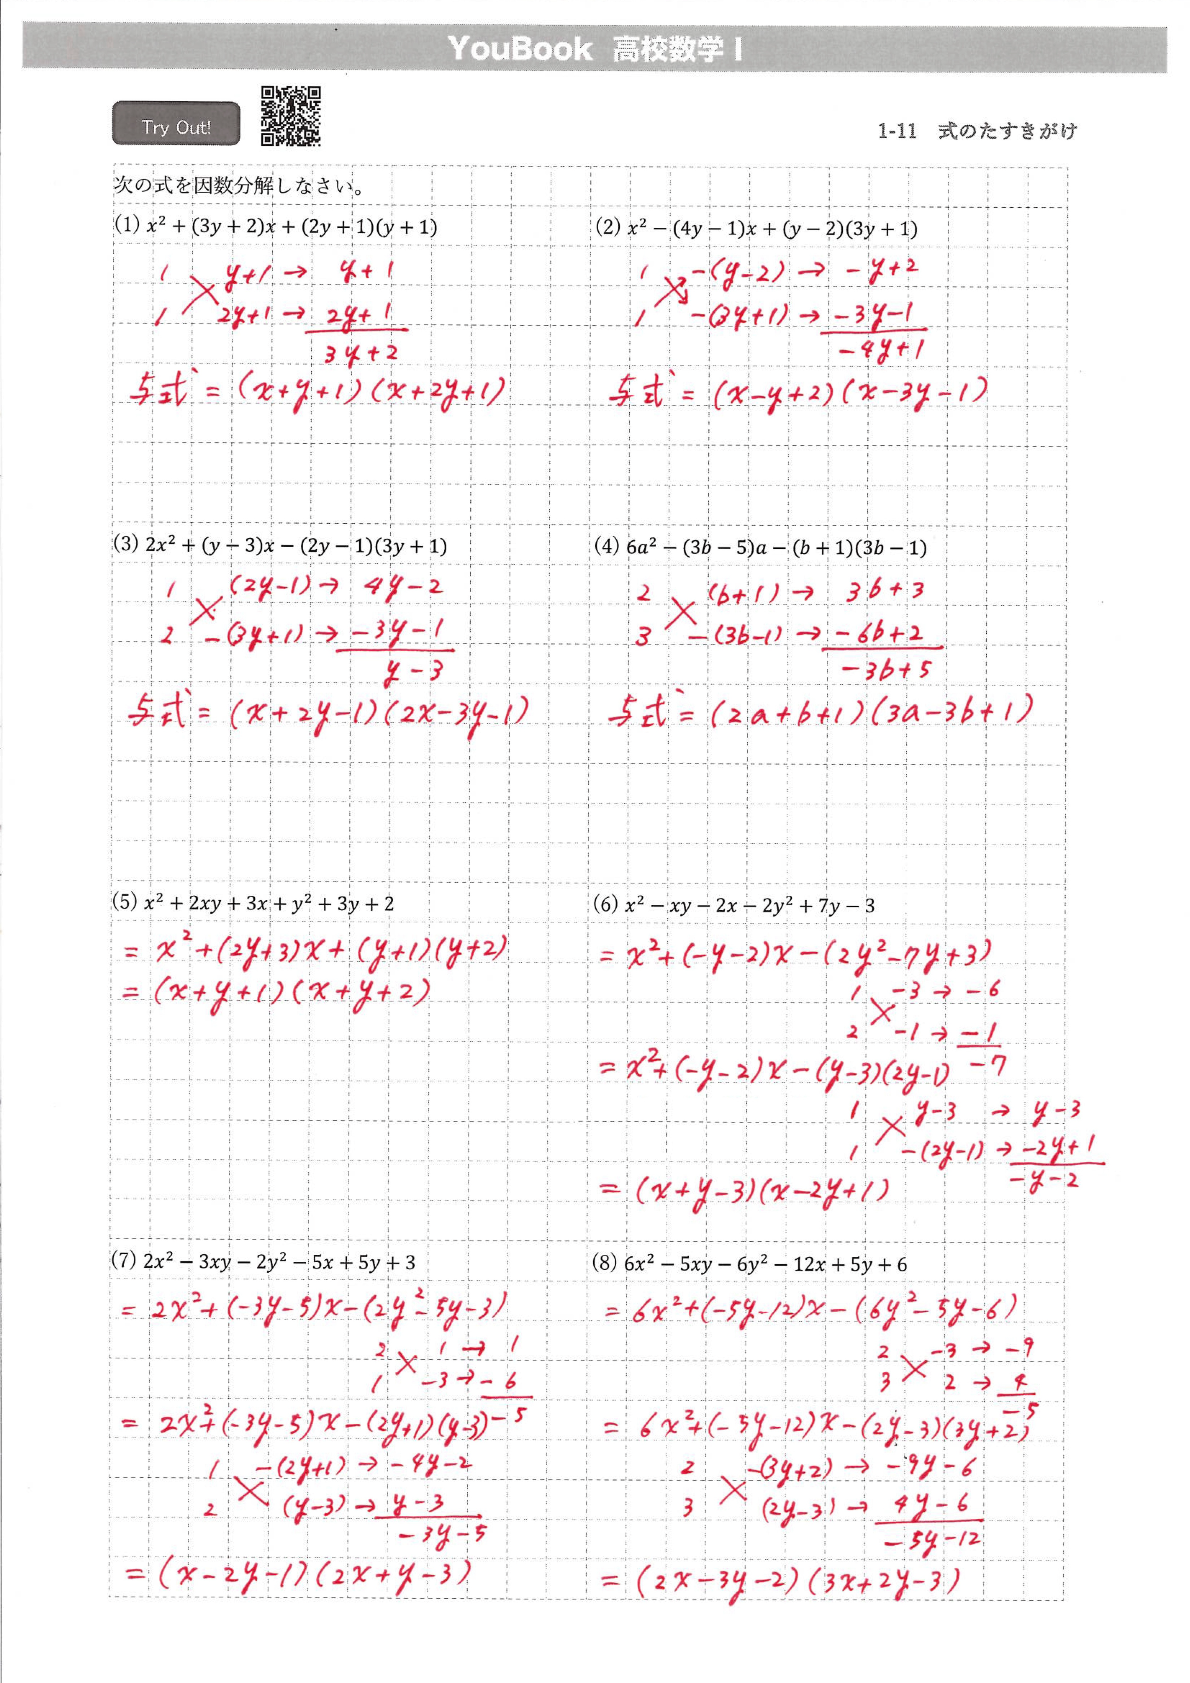 YouBook 高校数学Ⅰ
Try Out!
1-11 式のたすきがけ
次の式を因数分解しなさい。
(1) x² + (3y + 2)x + (2y + 1)(y + 1)
1 y+1 → y+1
1 2y+1 → 2y+1
3y+2
与式 = (x+y+1)(x+2y+1)
(2) x² − (4y − 1)x + (y − 2)(3y + 1)
1 -(y-2) → -y+2
1 -(3y+1) → -3y-1
-4y+1
与式 = (x-y+2)(x-3y-1)
(3) 2x² + (y − 3)x − (2y − 1)(3y + 1)
1 (2y-1) → 4y-2
2 -(3y+1) → -3y-1
y-3
与式 = (x+2y-1)(2x-3y-1)
(4) 6a² − (3b − 5)a − (b + 1)(3b − 1)
2 (b+1) → 3b+3
3 -(3b-1) → -6b+2
-3b+5
与式 = (2a+b+1)(3a-3b+1)
(5) x² + 2xy + 3x + y² + 3y + 2
= x²+(2y+3)x+(y+1)(y+2)
= (x+y+1)(x+y+2)
(6) x² − xy − 2x − 2y² + 7y − 3
= x²+(-y-2)x-(2y²-7y+3)
1 -3 → -6
2 -1 → -1
-7
= x²+(-y-2)x-(y-3)(2y-1)
1 y-3 → y-3
1 -(2y-1) → -2y+1
-y-2
= (x+y-3)(x-2y+1)
(7) 2x² − 3xy − 2y² − 5x + 5y + 3
= 2x²+(-3y-5)x-(2y²-5y-3)
2 1 → 1
1 -3 → -6
-5
= 2x²+(-3y-5)x-(2y+1)(y-3)
1 -(2y+1) → -4y-2
2 (y-3) → y-3
-3y-5
= (x-2y-1)(2x+y-3)
(8) 6x² − 5xy − 6y² − 12x + 5y + 6
= 6x²+(-5y-12)x-(6y²-5y-6)
2 -3 → -9
3 2 → 4
-5
= 6x²+(-5y-12)x-(2y-3)(3y+2)
2 -(3y+2) → -9y-6
3 (2y-3) → 4y-6
-5y-12
= (2x-3y-2)(3x+2y-3)